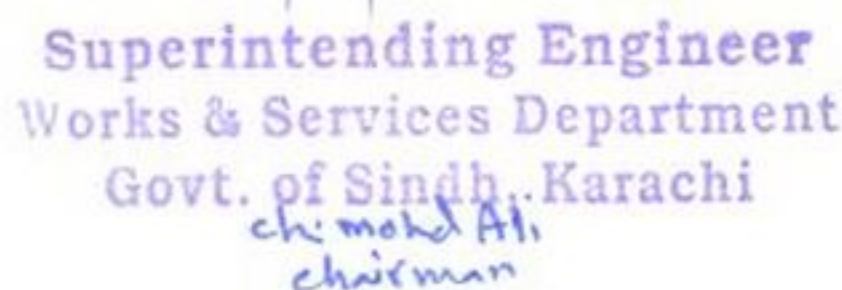 Superintending Engineer
Works & Services Department
Govt. of Sindh, Karachi
ch. mohd Ali
chairman